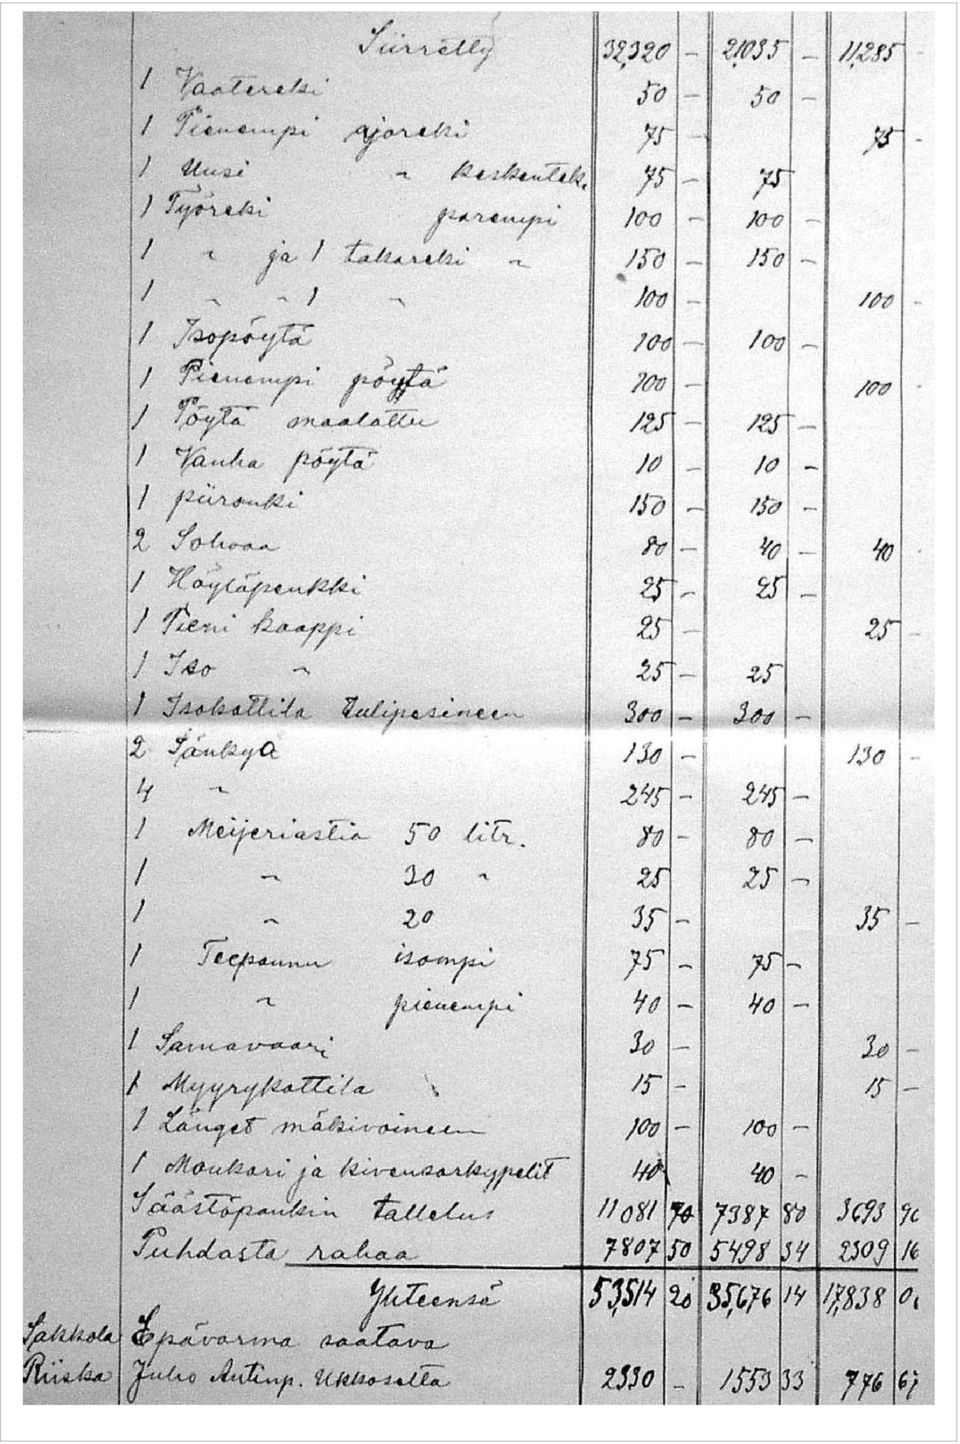 Siirretty 32,320 – 21,035 – 11,285 -
1 Vaatereki 50 – 50 –
1 Pienempi ajoreki 75 - 75 -
1 Uusi " keskentek. 75 – 75
1 Työreki parempi 100 – 100 –
1 " ja 1 takareki " 150 – 150 –
1 " " 1 " 100 – 100 -
1 Isopöytä 100 – 100 –
1 Pienempi pöytä 100 – 100 -
1 Pöytä maalattu 125 – 125 –
1 Vanha pöytä 10 – 10 –
1 piironki 150 – 150 –
2 Sohvaa 80 – 40 – 40 -
1 Höyläpenkki 25 – 25 –
1 Pieni kaappi 25 – 25 -
1 Iso " 25 – 25
1 Isokattila tulipesineen 300 – 300 –
2 Sänkyä 130 – 130 -
4 " 245 – 245 –
1 Meijeriastia 50 litr. 80 – 80 –
1 " 30 " 25 25 –
1 " 20 35 – 35 –
1 Teepannu isompi 75 – 75 –
1 " pienempi 40 – 40 –
1 Samavaari 30 – 30 –
1 Myyrykattila 15 – 15 –
1 Länget mäkivöineen 100 – 100 –
1 Moukari ja kivensärkypelit 40 40 –
Säästöpankin talletus 11081 70 7387 80 3693 90
Puhdasta rahaa 7807 50 5498 34 2309 16
Yhteensä 53,514 20 35,676 14 17,838 0
Sakkola Epävarma saatava
Riiska Juho Antinp. Ukkoselta 2330 – 1553 33 776 67